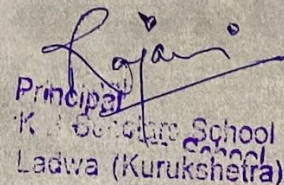 Rajani
Principal
K School
School
Ladwa (Kurukshetra)